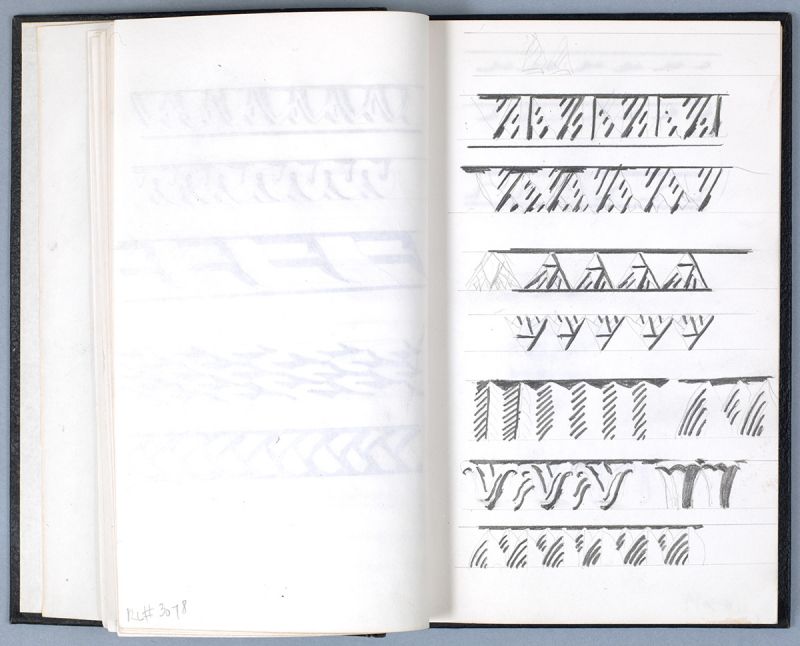 RL# 3078